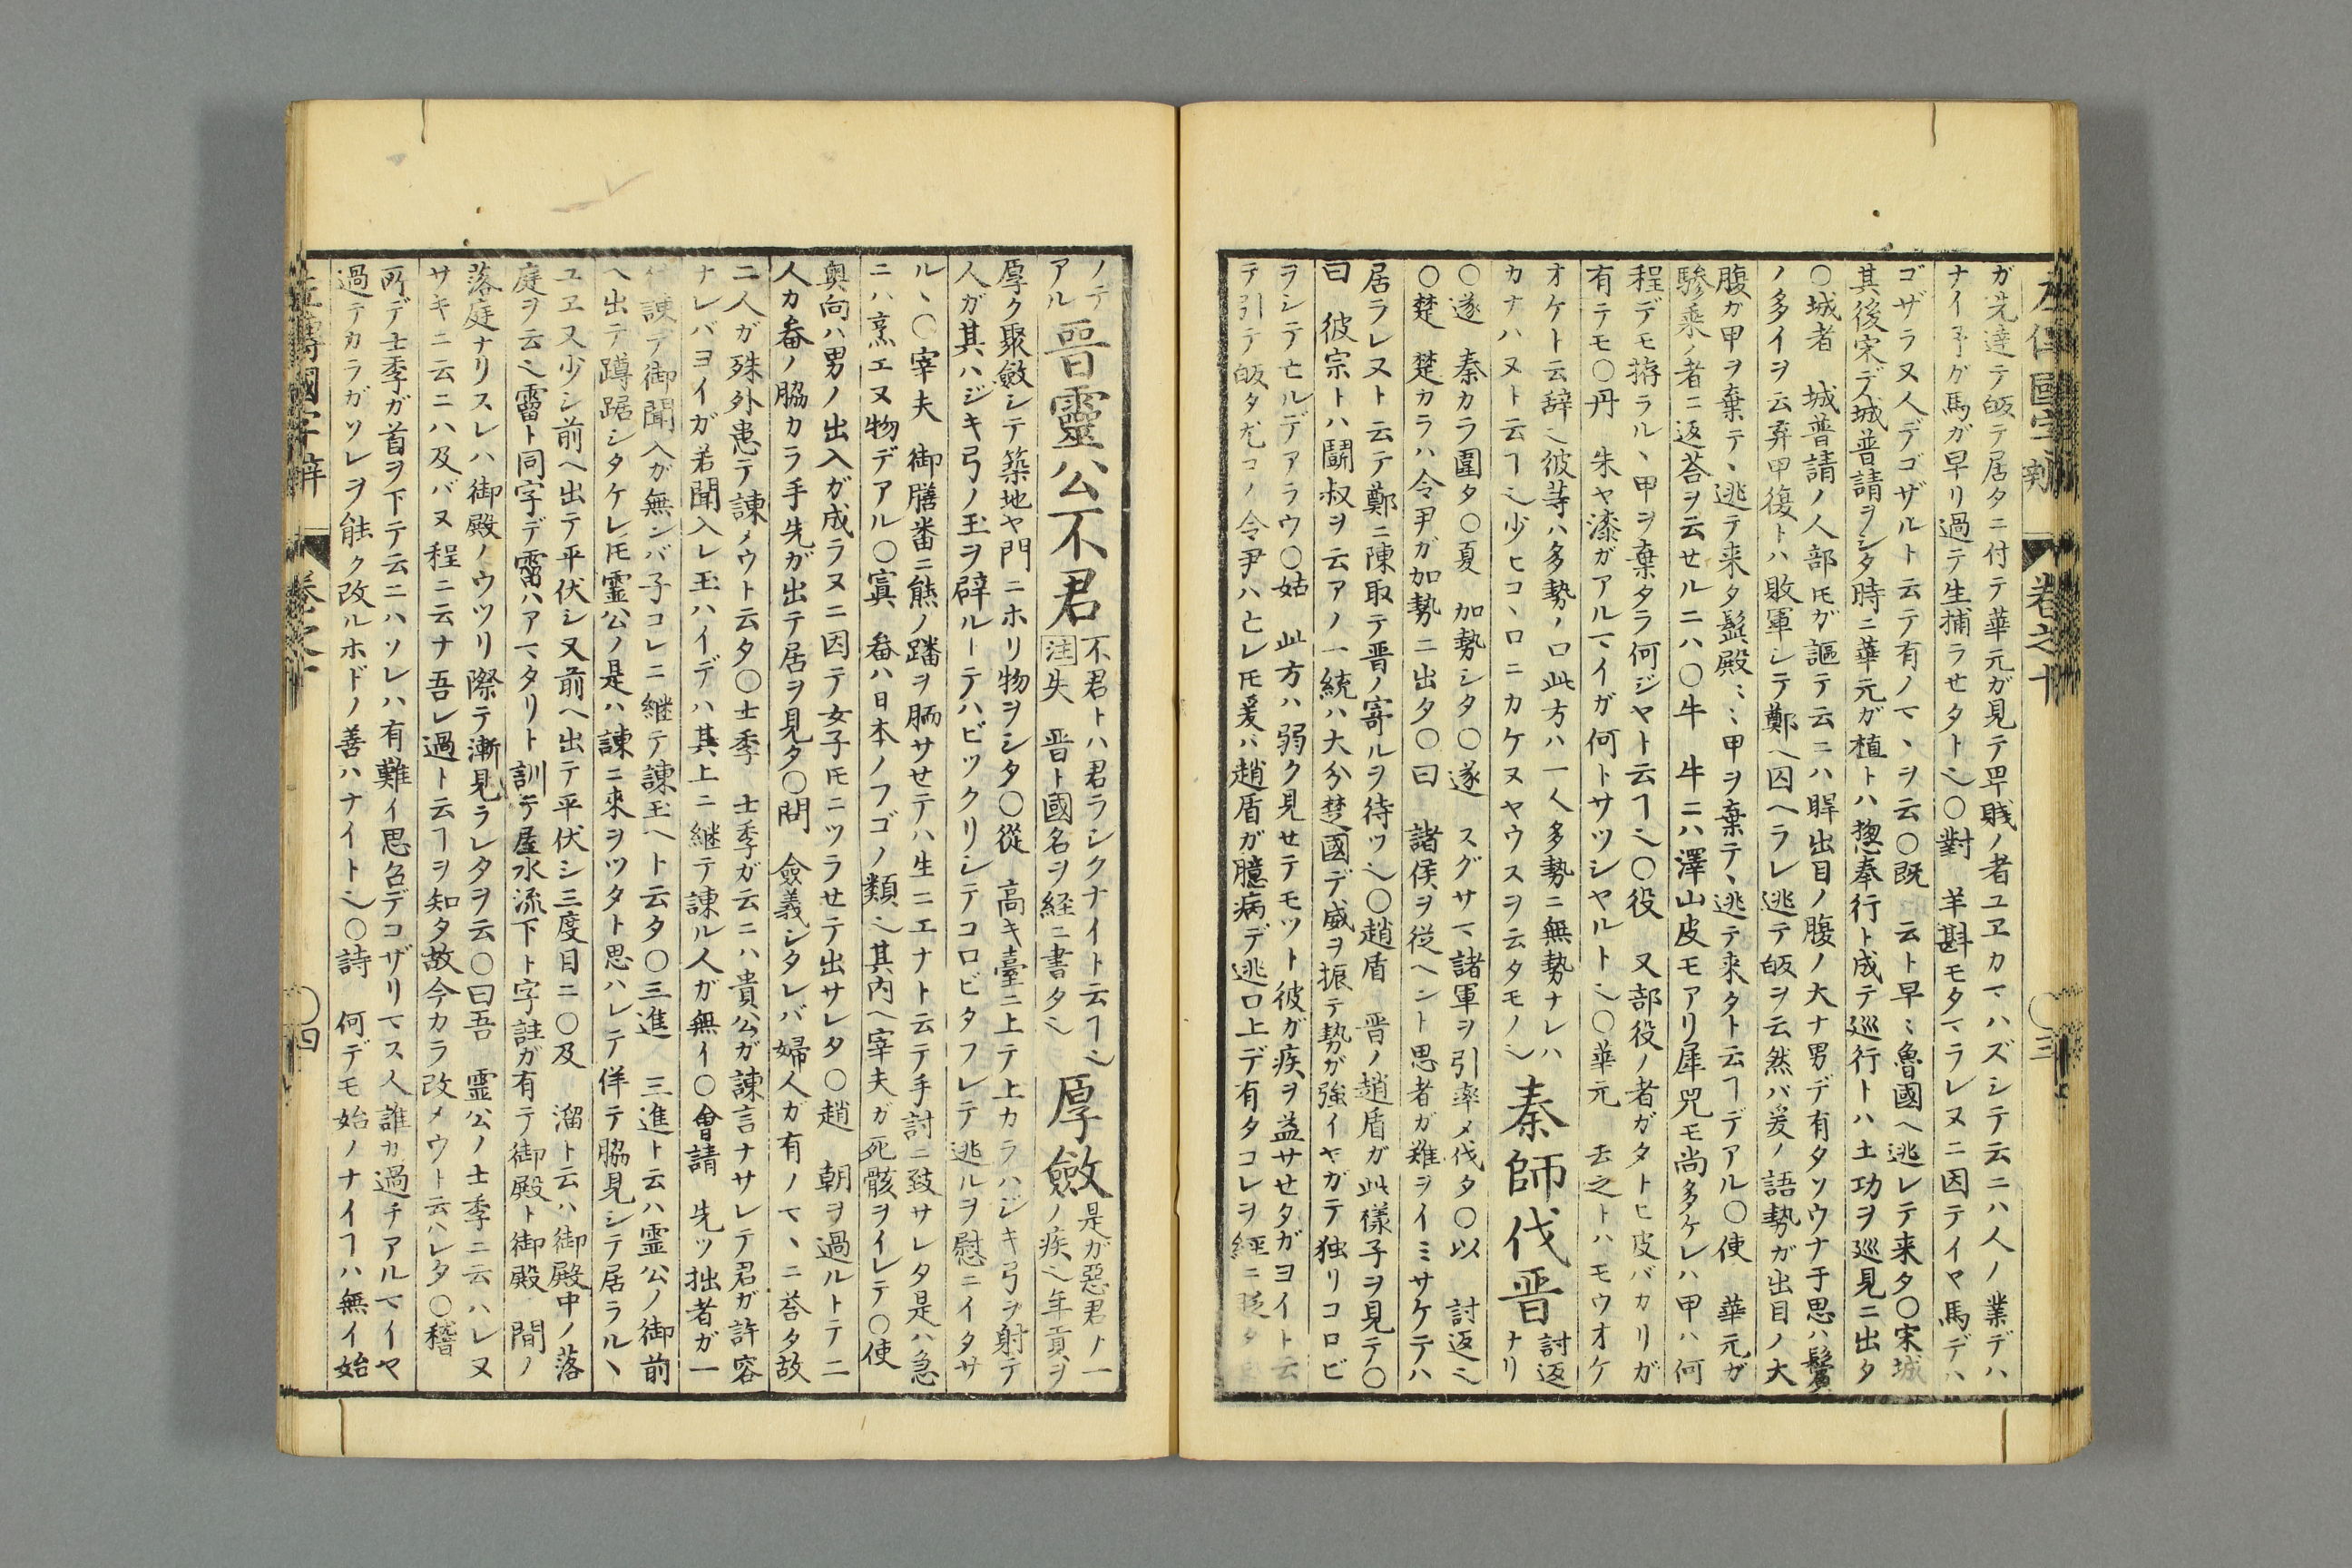 ガ先達テ皈テ居タニ付テ華元ガ見テ甲賎ノ者ユヱカマハズシテ云ニハ人ノ業デハ
ナイ予ガ馬ガ早リ過テ生捕ラセタト〻〇對　羊斟モタマラレヌニ因テイヤ馬デハ
ゴザラヌ人デゴザルト云テ有ノマヽヲ云〇既　云ト早〻魯國ヘ逃レテ来タ〇宋城
其後宋デ城普請ヲシタ時ニ華元ガ植トハ惣奉行ト成テ巡行トハ土功ヲ巡見ニ出タ
〇城者　城普請ノ人部𪜈ガ謳テ云ニハ睅出目ノ腹ノ大ナ男デ有タソウナ于思ハ鬚
ノ多イヲ云弃甲復トハ敗軍シテ鄭ヘ囚ヘラレ逃テ皈ヲ云然バ爰ノ語勢ガ出目ノ大
腹ガ甲ヲ棄テヽ逃テ来タ髭殿〻〻甲ヲ棄テヽ逃テ来タト云ヿデアル〇使　華元ガ
驂乘ノ者ニ返荅ヲ云セルニハ〇牛　牛ニハ澤山皮モアリ犀兕モ尚多ケレハ甲ハ何
程デモ拵ラルヽ甲ヲ棄タラ何ジヤト云ヿ〻〇役　又部役ノ者ガタトヒ皮バカリガ
有テモ〇丹　朱ヤ漆ガアルマイガ何トサツシヤルト〻〇華元　去之トハモウオケ
オケト云辞〻彼等ハ多勢ノ口此方ハ一人多勢ニ無勢ナレハ
カナハヌト云ヿ〻少ヒコヽロニカケヌヤウスヲ云タモノ〻
秦師伐晋
討返
ナリ
〇遂　秦カラ圍タ〇夏　加勢シタ〇遂　スグサマ諸軍ヲ引率メ伐タ〇以　討返〻
〇楚　楚カラハ令尹ガ加勢ニ出タ〇曰　諸侯ヲ従ヘント思者ガ難ヲイミサケテハ
居ラレヌト云テ鄭ニ陳取テ晋ノ寄ルヲ待ツ〻〇趙盾　晋ノ趙盾ガ此様子ヲ見テ〇
曰　彼宗トハ鬭叔ヲ云アノ一統ハ大分楚國デ威ヲ振テ勢ガ強イヤガテ独リコロビ
ラシテ亡ルデアラウ〇姑　此方ハ弱ク見セテモツト彼ガ疾ヲ益サセタガヨイト云
テ引テ皈タ尤コノ令尹ハ亡レ𪜈爰ハ趙盾ガ臆病デ逃口上デ有タコレヲ經ニ
左傳國字辨　巻之十　〇三
ノテ
アル
晋靈公不君
不君トハ君ラシクナイト云ヿ〻
注失　晋ト國名ヲ経ニ書タ〻
厚斂
是ガ惡君ノ一
ノ疾〻年貢ヲ
厚ク聚斂シテ築地ヤ門ニホリ物ヲシタ〇從　高キ臺ニ上テ上カラハジキ弓ヲ射テ
人ガ其ハジキ弓ノ玉ヲ辟ルーテハビツクリシテコロビタフレテ逃ルヲ慰ニイタサ
ルヽ〇宰夫　御膳番ニ熊ノ蹯ヲ胹サセテハ生ニエナト云テ手討ニ致サレタ是ハ急
ニハ烹エヌ物デアル〇寘　畚ハ日本ノフゴノ類〻其内ヘ宰夫ガ死骸ヲイレテ〇使
奥向ハ男ノ出入ガ成ラヌニ因テ女子𪜈ニツラセテ出サレタ〇趙　朝ヲ過ルトテ二
人カ畚ノ脇カラ手先ガ出テ居ヲ見タ〇問　僉義シタレバ婦人ガ有ノマヽニ荅タ故
二人ガ殊外患テ諌メウト云タ〇士季　士季ガ云ニハ貴公ガ諌言ナサレテ君ガ許容
ナレバヨイガ若聞入レ玉ハイデハ其上ニ継テ諌ル人ガ無イ〇會請　先ツ拙者ガ一
諌デ御聞入ガ無ンバ子コレニ継テ諌玉ヘト云タ〇三進　三進ト云ハ霊公ノ御前
ヘ出テ蹲踞シタケレ𪜈霊公ノ是ハ諌ニ來ヲツタト思ハレテ佯テ脇見シテ居ラルヽ
ユヱ又少シ前ヘ出テ平伏シ又前ヘ出テ平伏シ三度目ニ〇及　溜ト云ハ御殿中ノ落
庭ヲ云〻霤ト同字デ霤ハアマタリト訓テ屋水流下ト字註ガ有テ御殿ト御殿　間ノ
落庭ナリスレハ御殿ノウツリ際テ漸見ラレタヲ云〇曰吾　霊公ノ士季ニ云ハレヌ
サキニ云ニハ及バヌ程ニ云ナ吾レ過ト云ヿヲ知タ故今カラ改メウト云ハレタ〇稽
所デ士季ガ首ヲ下テ云ニハソレハ有難イ思召デコザリマス人誰カ過チアルマイヤ
過テカラガソレヲ能ク改ルホドノ善ハナイト〻〇詩　何デモ始ノナイヿハ無イ始
左傳國字辨　巻之十　〇四